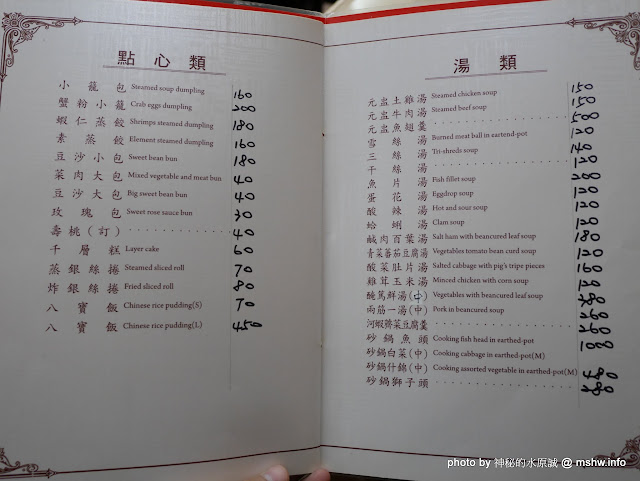 點心類
小籠包 Steamed soup dumpling 160
蟹粉小籠 Crab eggs dumpling 200
蝦仁蒸餃 Shrimps steamed dumpling 180
素蒸餃 Element steamed dumpling 160
豆沙小包 Sweet bean bun 180
菜肉大包 Mixed vegetable and meat bun 40
豆沙大包 Big sweet bean bun 40
玫瑰包 Sweet rose sauce bun 30
壽桃(訂) 40
千層糕 Layer cake 60
蒸銀絲捲 Steamed sliced roll 70
炸銀絲捲 Fried sliced roll 80
八寶飯 Chinese rice pudding(S) 70
八寶飯 Chinese rice pudding(L) 450
湯類
元盅土雞湯 Steamed chicken soup 150
元盅牛肉湯 Steamed beef soup 150
元盅魚翅羹
雪絲湯 Burned meat ball in eartend-pot 120
三絲湯 Tri-shreds soup
干絲湯 120
魚片湯 Fish fillet soup
蛋花湯 Eggdrop soup 120
酸辣湯 Hot and sour soup 120
蛤蜊湯 Clam soup 120
鹹肉百葉湯 Salt ham with beancured leaf soup 180
青菜蕃茄豆腐湯 Vegetables tomato bean curd soup 120
酸菜肚片湯 Salted cabbage with pig's tripe pieces 160
雞茸玉米湯 Minced chicken with corn soup 120
醃篤鮮湯(中) Vegetables with beancured leaf soup
兩筋一湯(中) Pork in beancured soup
河蝦薺菜豆腐羹
砂鍋魚頭 Cooking fish head in earthed-pot
砂鍋白菜(中) Cooking cabbage in earthed-pot(M)
砂鍋什錦(中) Cooking assorted vegetable in earthed-pot(M)
砂鍋獅子頭
photo by 神秘的水原誠 @ mshw.info